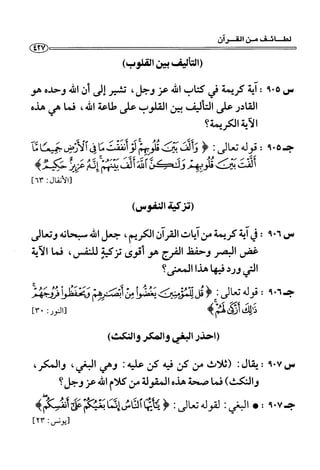 لطـائـف مـن القـرآن
٤٢٧
(التأليف بين القلوب)
س ٩٠٥ : آية كريمة في كتاب الله عز وجل، تشير إلى أن الله وحده هو
القادر على التأليف بين القلوب على طاعة الله، فما هي هذه
الآية الكريمة؟
جـ ٩٠٥ : قوله تعالى: ﴿ وَأَلَّفَ بَيْنَ قُلُوبِهِمْ لَوْ أَنفَقْتَ مَا فِي الْأَرْضِ جَمِيعًا مَّا
أَلَّفْتَ بَيْنَ قُلُوبِهِمْ وَلَٰكِنَّ اللَّهَ أَلَّفَ بَيْنَهُمْ إِنَّهُ عَزِيزٌ حَكِيمٌ ﴾
[الأنفال: ٦٣]
(تزكية النفوس)
س ٩٠٦ : في آية كريمة من آيات القرآن الكريم، جعل الله سبحانه وتعالى
غض البصر وحفظ الفرج هو أقوى تزكيةٍ للنفس، فما الآية
التي ورد فيها هذا المعنى؟
جـ ٩٠٦ : قوله تعالى: ﴿ قُل لِّلْمُؤْمِنِينَ يَغُضُّوا مِنْ أَبْصَارِهِمْ وَيَحْفَظُوا فُرُوجَهُمْ
ذَٰلِكَ أَزْكَىٰ لَهُمْ ﴾
[النور: ٣٠]
(احذر البغي والمكر والنكث)
س ٩٠٧ : يقال: (ثلاث من كن فيه كن عليه: وهي البغي، والمكر،
والنكث) فما صحة هذه المقولة من كلام الله عز وجل؟
جـ ٩٠٧ : * البغي: لقوله تعالى: ﴿ يَا أَيُّهَا النَّاسُ إِنَّمَا بَغْيُكُمْ عَلَىٰ أَنفُسِكُم ﴾
[يونس: ٢٣]